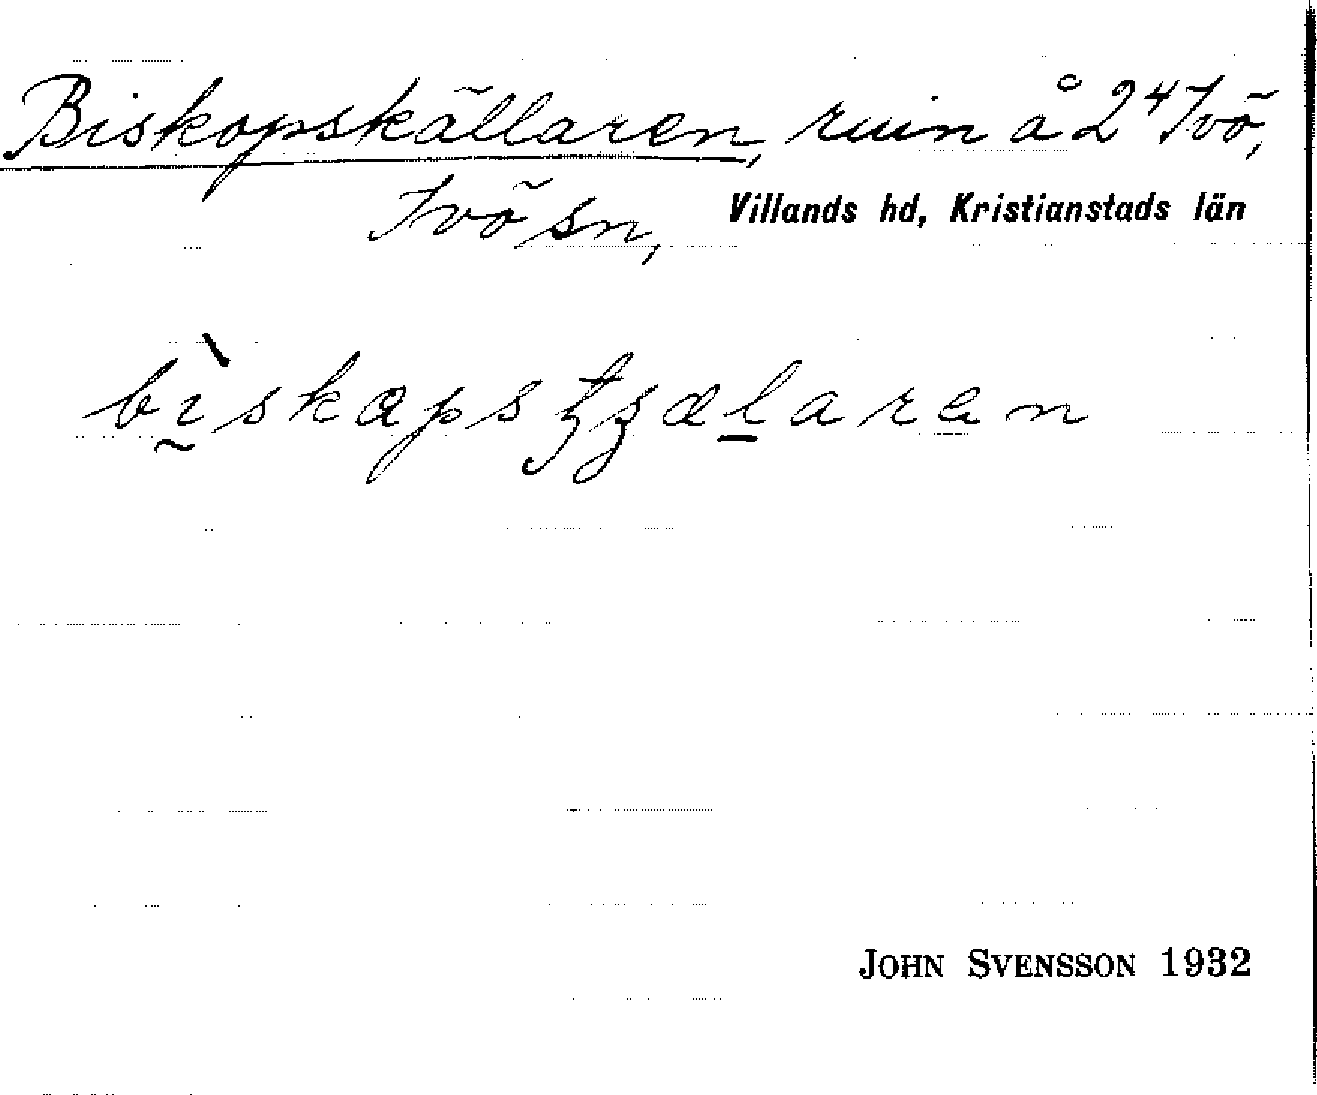 Biskopskällaren, ruin å 24 Ivö,
Ivö sn, Villands hd, Kristianstads län
JOHN SVENSSON 1932